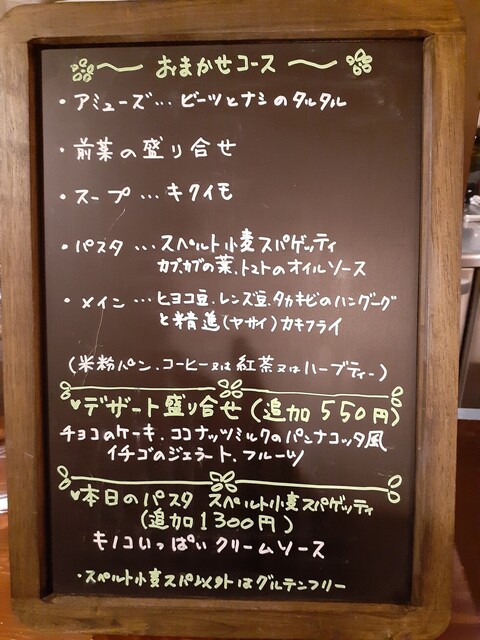 おまかせコース
・アミューズ…ビーツとナシのタルタル
・前菜の盛り合せ
・スープ…キクイモ
・パスタ…スペルト小麦スパゲッティ
カブ.カブの葉.トマトのオイルソース
・メイン…ヒヨコ豆.レンズ豆.タカキビのハンバーグ
と精進(ヤサイ)カキフライ
(米粉パン.コーヒー又は紅茶又はハーブティー)
デザート盛り合せ(追加550円)
チョコのケーキ.ココナッツミルクのパンナコッタ風
イチゴのジェラート.フルーツ
本日のパスタ スペルト小麦スパゲッティ
(追加1300円)
キノコいっぱいクリームソース
・スペルト小麦スパ以外はグルテンフリー